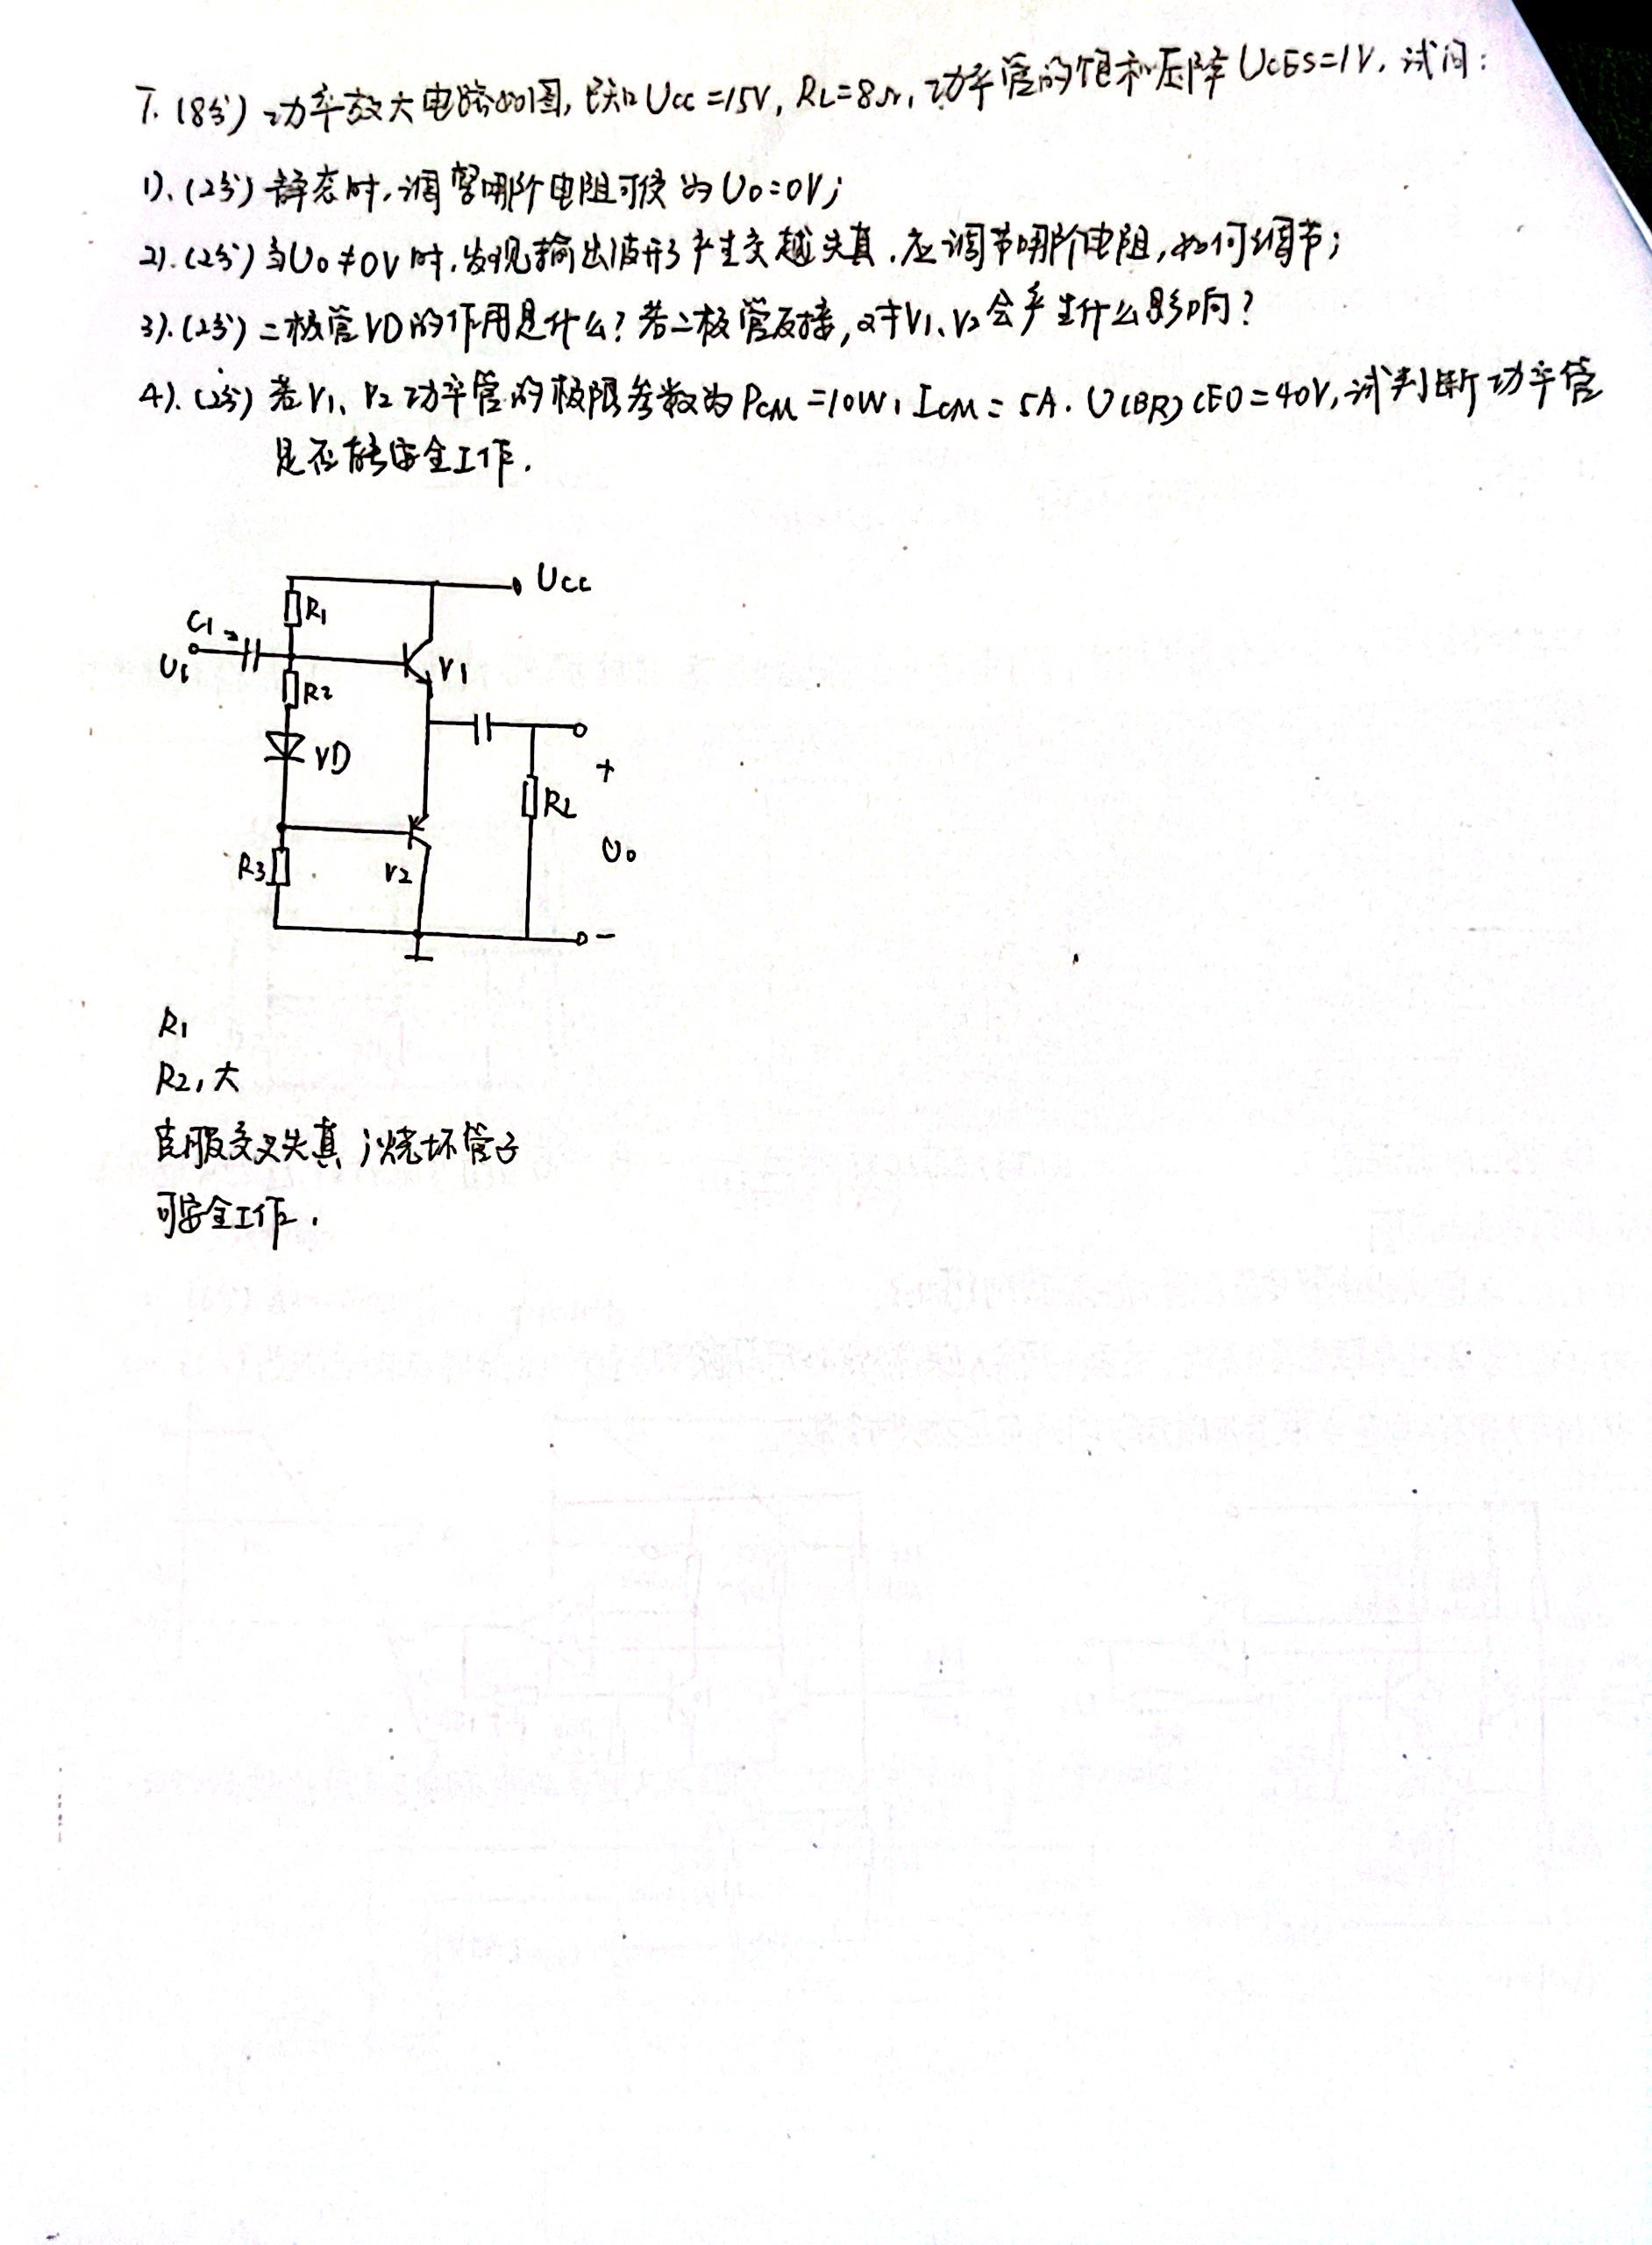 7. (8分) 功率放大电路如图, 已知 Ucc=15V, RL=8Ω, 功率管的饱和压降 UCES=1V, 试问:
1). (2分) 静态时, 调整哪个电阻可使为 Uo=0V;
2). (2分) 当Uo≠0V时, 发现输出波形产生交越失真, 应调节哪个电阻, 如何调节;
3). (2分) 二极管VD的作用是什么? 若二极管反接, 对V1、V2会产生什么影响?
4). (2分) 若V1、V2功率管的极限参数为 PCM=10W, ICM=5A. U(BR)CEO=40V, 试判断功率管
是否能安全工作.
Ucc
R1
C1
Ui
V1
R2
VD
+
RL
Uo
R3
V2
-
R1
R2, 大
克服交叉失真; 烧坏管子
可安全工作.